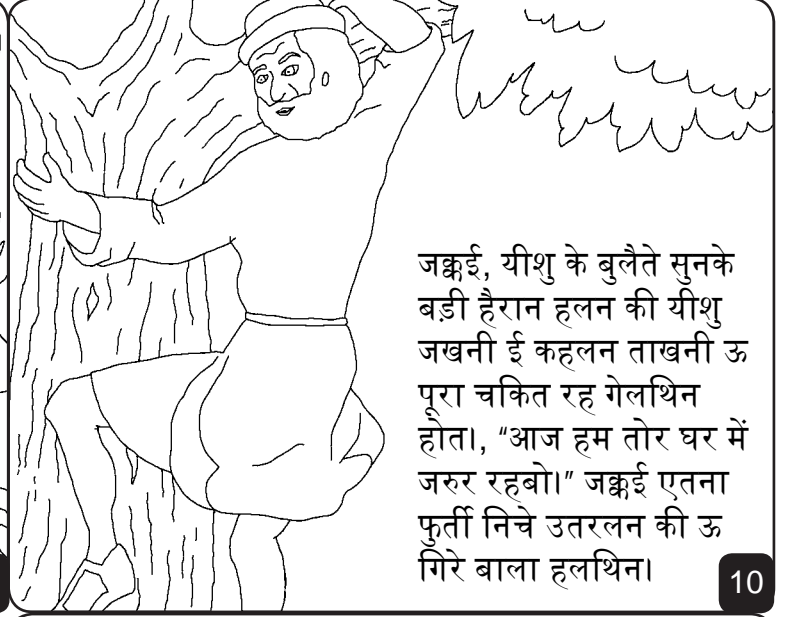 जक्कई, यीशु के बुलैते सुनके
बड़ी हैरान हलन की यीशु
जखनी ई कहलन ताखनी ऊ
पूरा चकित रह गेलथिन
होत।, “आज हम तोर घर में
जरुर रहबो।” जक्कई एतना
फुर्ती निचे उतरलन की ऊ
गिरे बाला हलथिन।
10